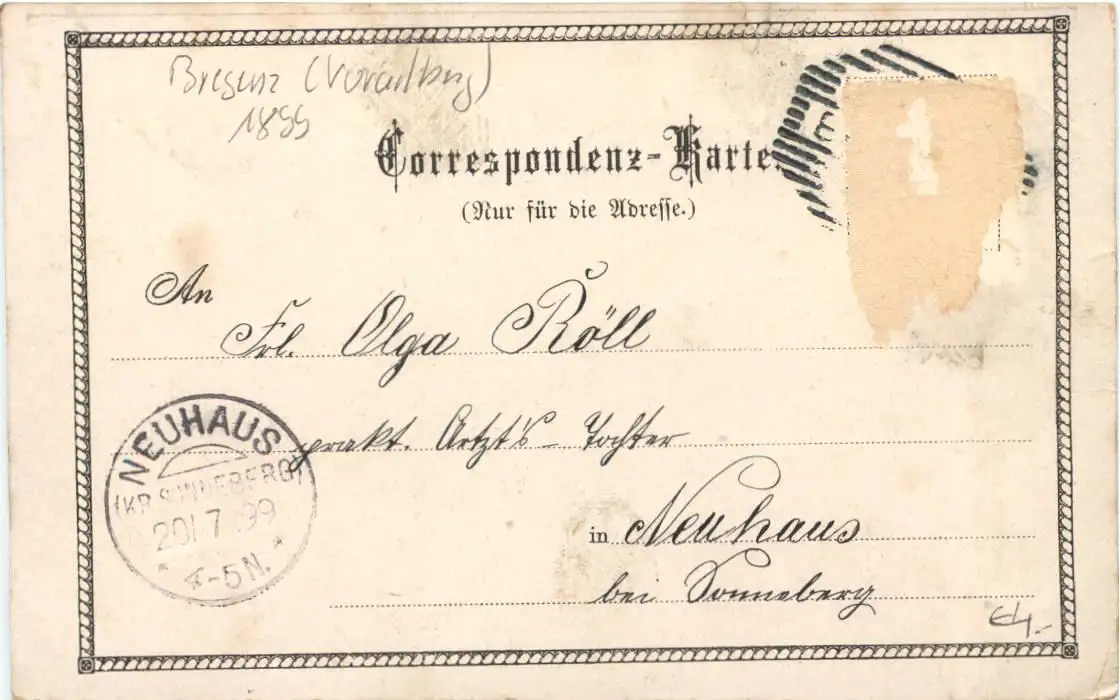 Bregenz (Vorarlberg)
1899
Correspondenz-Karte.
(Nur für die Adresse.)
An
Frl. Olga Röll
prakt. Artzt's- Tochter
in Neuhaus
bei Sonneberg
NEUHAUS
(KR. SONNEBERG)
20/7.99
* 4-5N. *